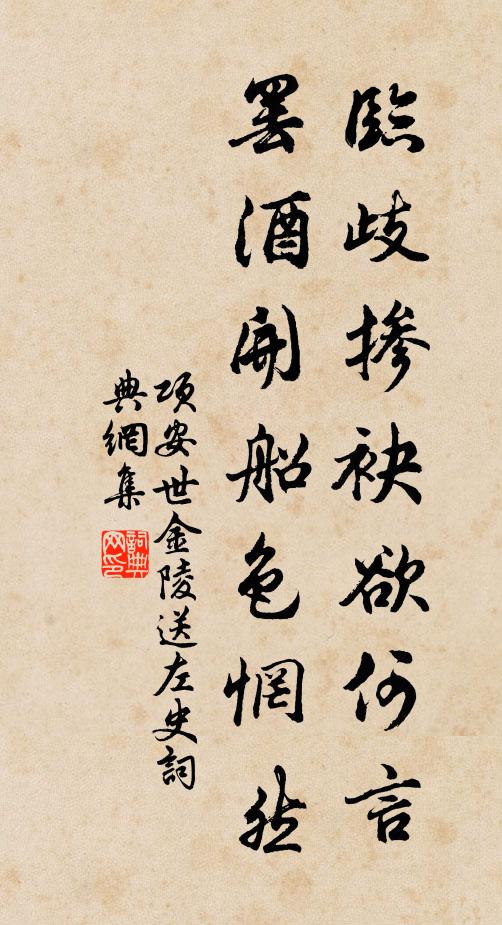 臨歧摻袂欲何言
罢酒開船色惘然
項安世金陵送左史詞
典網集
詞典
网印